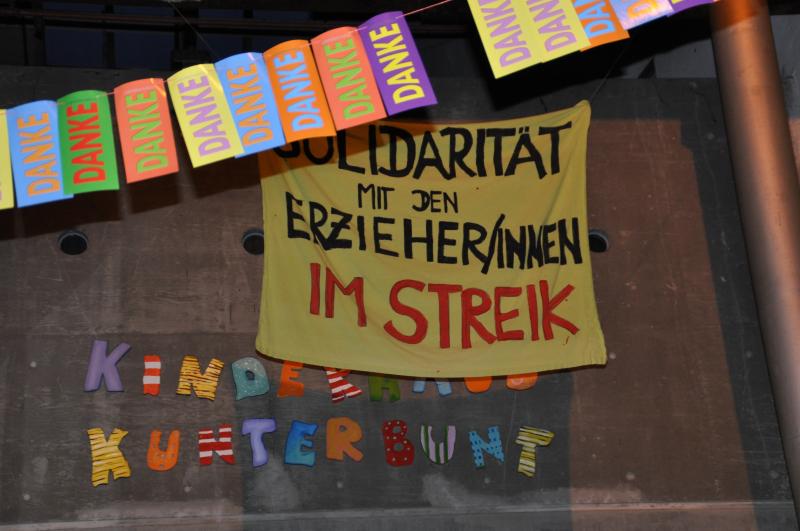 DANKE DANKE DANKE DANKE DANKE DANKE DANKE DANKE DANKE DANKE DANKE
SOLIDARITÄT
MIT DEN
ERZIEHER/INNEN
IM STREIK
KINDERHAUS
KUNTERBUNT